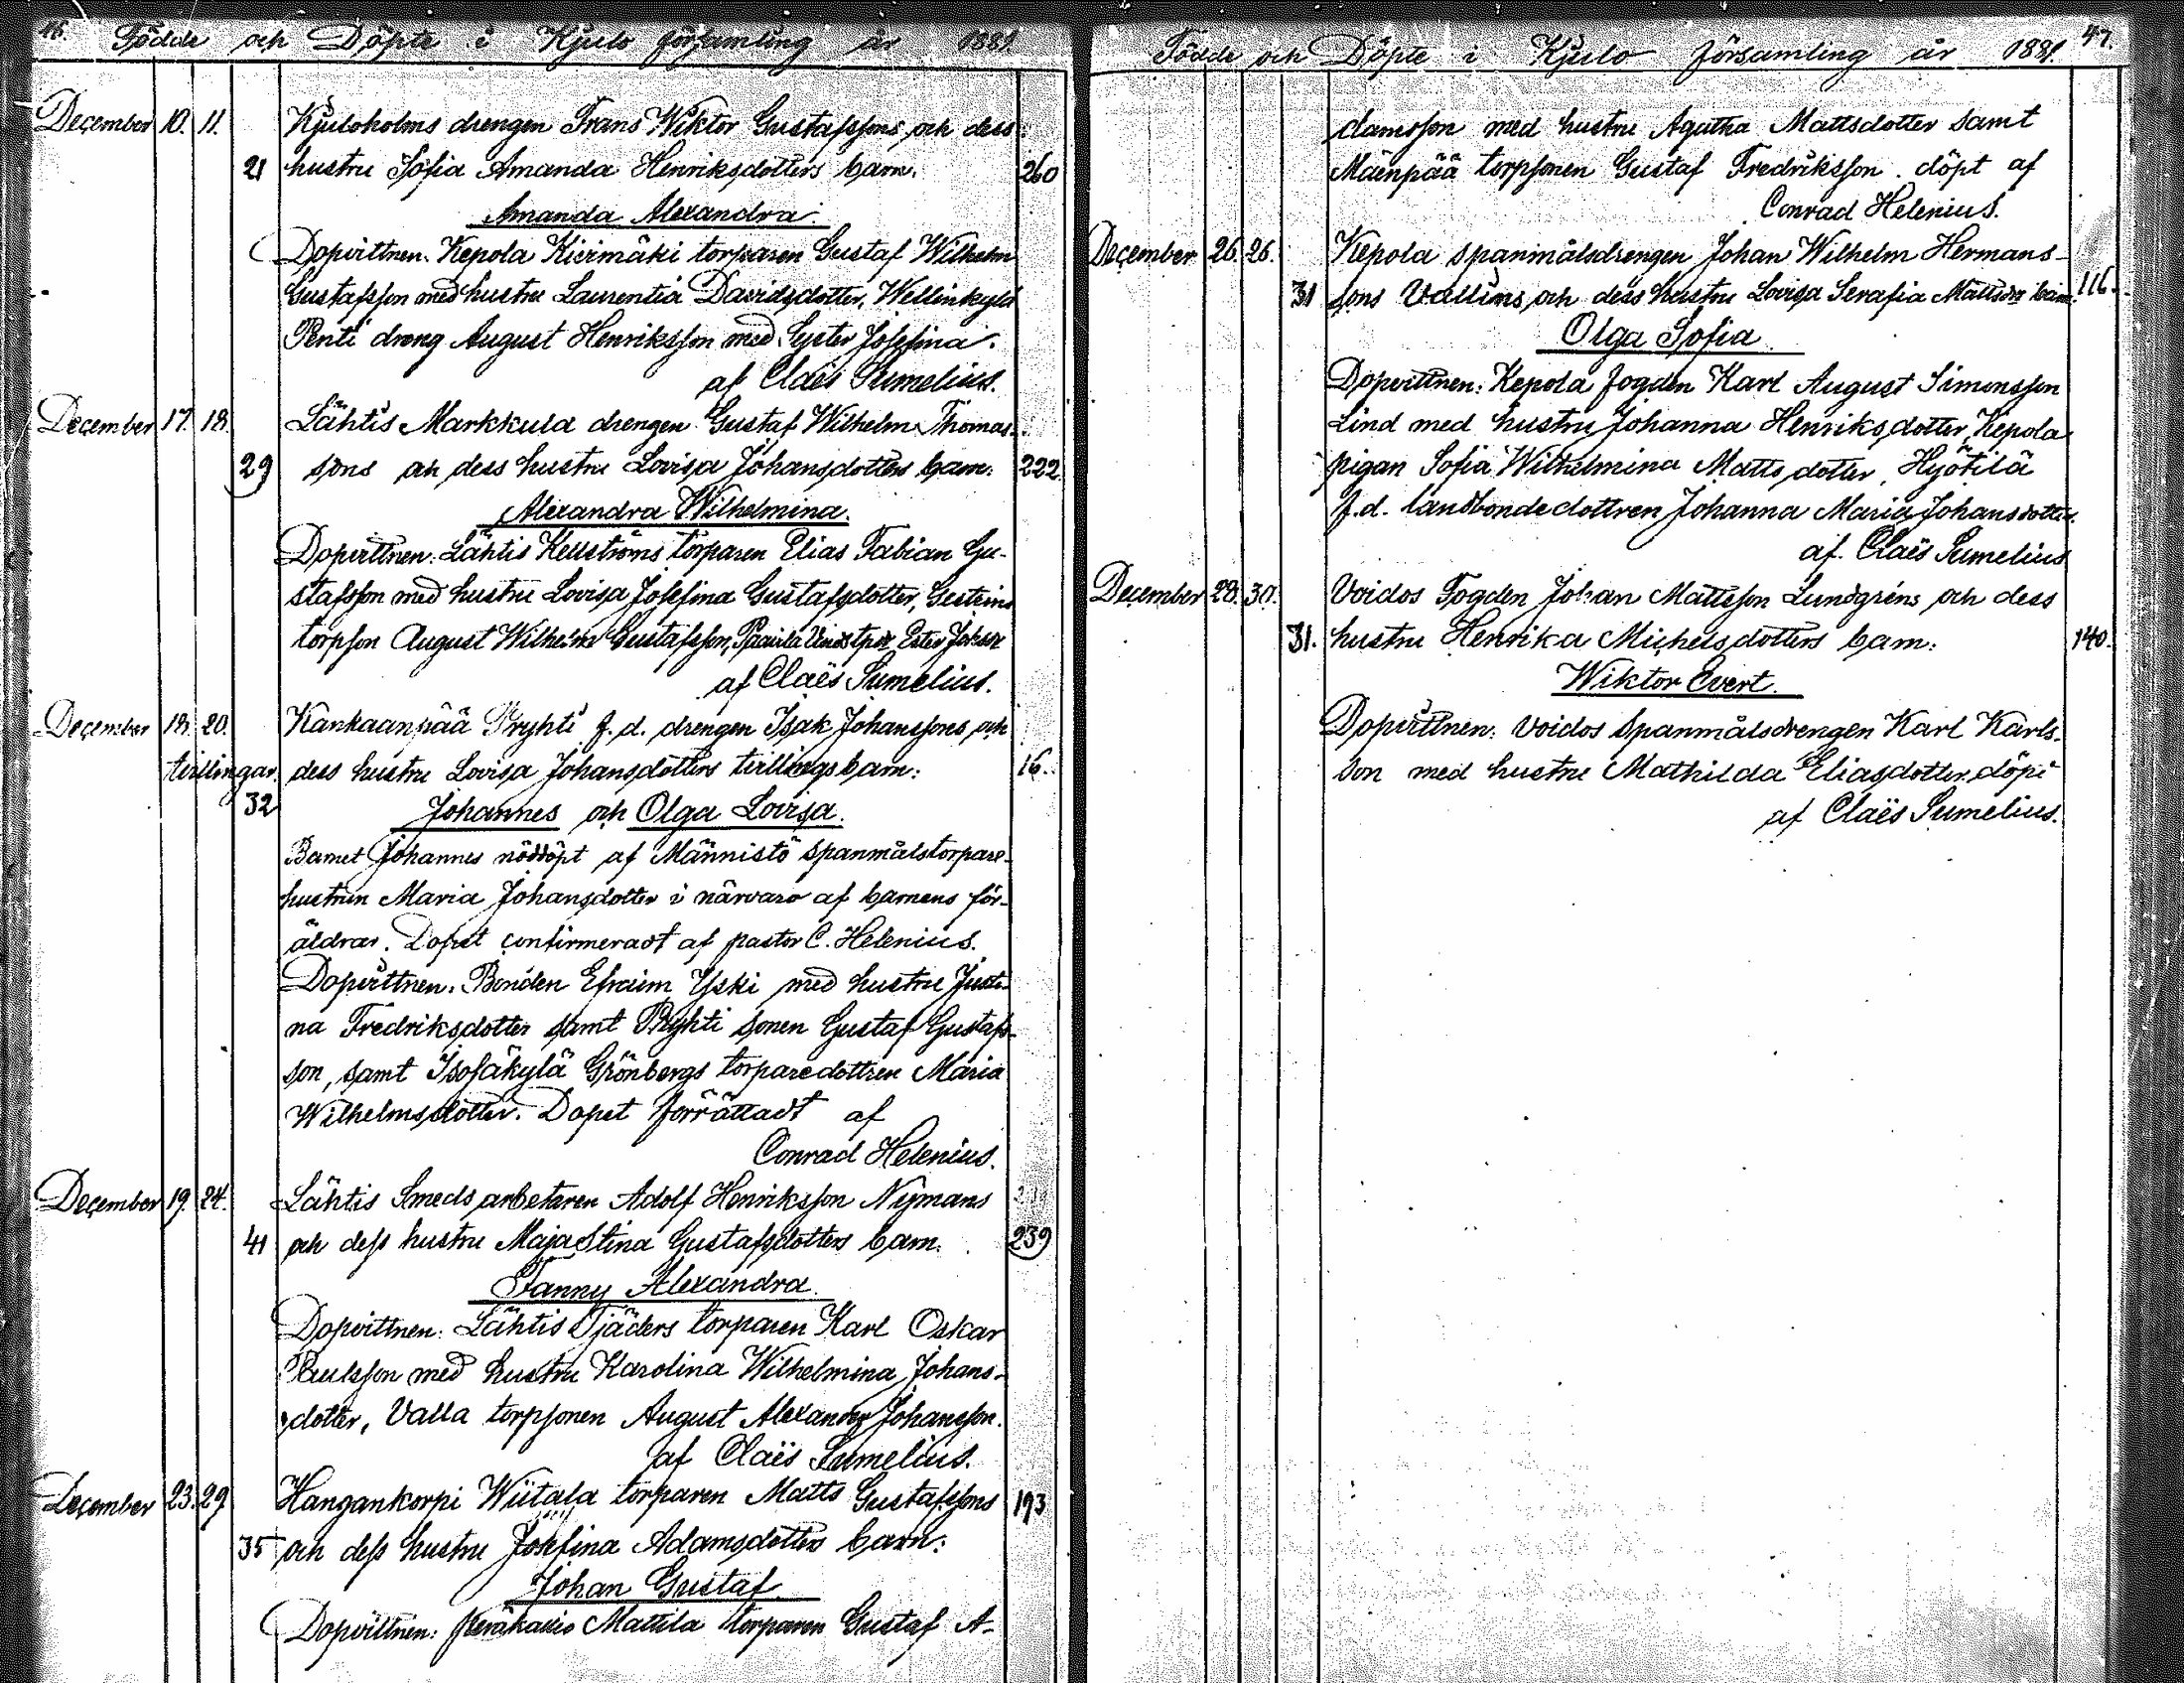 46. Födde och Döpte i Kjulo församling år 1881.
December 10. 11. Kjuloholms drengen Frans Wiktor Gustafssons och dess
21 hustru Sofia Amanda Henriksdotters barn. 260
Amanda Alexandra.
Dopvittnen. Kepola Kivimäki torparen Gustaf Wilhelm
Gustafsson med hustru Laurentia Davidsdotter, Wellinkylä
Penti dreng August Henriksson med Syster Josefina.
af Claës Sumelius.
December 17. 18. Lähtis Markkula drengen Gustaf Wilhelm Thomas-
29 sons och dess hustru Lovisa Johansdotters barn: 222.
Alexandra Wilhelmina.
Dopvittnen: Lähtis Kellströms torparen Elias Fabian Gu-
stafsson med hustru Lovisa Josefina Gustafsdotter,
torpson August Wilhelm Gustafsson, Ester
af Claës Sumelius.
December 18. 20. Kankaanpää Pryhti f.d. drengen Isak Johanssons och
tvillingar. dess hustru Lovisa Johansdotters tvillingsbarn: 16.
32 Johannes och Olga Lovisa.
Barnet Johannes nöddöpt af Männistö spanmålstorpare-
hustrun Maria Johansdotter i närvaro af barnens för-
äldrar. Dopet confirmeradt af pastor C. Helenius.
Dopvittnen. Bonden Efraim Yski med hustru Justi-
na Fredriksdotter samt Pryhti sonen Gustaf Gustafs-
son, samt Isosäkylä Grönbergs torparedottren Maria
Wilhelmsdotter. Dopet förrättadt af
Conrad Helenius.
December 19. 24. Lähtis Smeds arbetaren Adolf Henriksson Nymans
41 och dess hustru Maja Stina Gustafsdotters barn. 239
Fanny Alexandra.
Dopvittnen: Lähtis Tjäders torparen Karl Oskar
Paulsson med hustru Karolina Wilhelmina Johans-
dotter, Valla torpsonen August Alexander Johansson.
af Claës Sumelius.
December 23. 29 Hangankorpi Wiitala torparen Matts Gustafssons 193
35 och dess hustru Josefina Adamsdotters barn:
Johan Gustaf
Dopvittnen: Mattila torparen Gustaf A-
Födde och Döpte i Kjulo församling år 1881. 47.
damsson med hustru Agatha Mattsdotter samt
Mäenpää torpsonen Gustaf Fredriksson. döpt af
Conrad Helenius.
December 26. 26. Kepola spanmålsdrengen Johan Wilhelm Hermans-
31 sons Vallins och dess hustru Lovisa Serafia Mattsdrs barn. 116.
Olga Sofia.
Dopvittnen: Kepola fogden Karl August Simonsson
Lind med hustru Johanna Henriksdotter, Kepola
pigan Sofia Wilhelmina Mattsdotter, Hyötilä
f.d. landbondedottren Johanna Maria Johansdotter.
af. Claës Sumelius
December 28. 30. Voidos Fogden Johan Mattsson Lundgréns och dess
31. hustru Henrika Michelsdotters barn: 140.
Wiktor Evert.
Dopvittnen: Voidos spanmålsdrengen Karl Karls-
son med hustru Mathilda Eliasdotter. döpt
af Claës Sumelius.